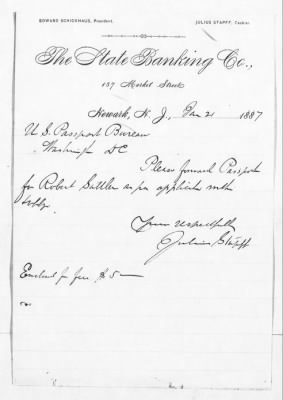 EDWARD SCHICKHAUS, President. JULIUS STAPFF, Cashier.
The State Banking Co.,
137 Market Street
Newark, N. J., Jan 21 1887
U S Passport Bureau
Washington DC
Please forward Passport
for Robert Sattler as per application with
Yours respectfully
Julius Stapff
Enclosed for fees $ 5 —